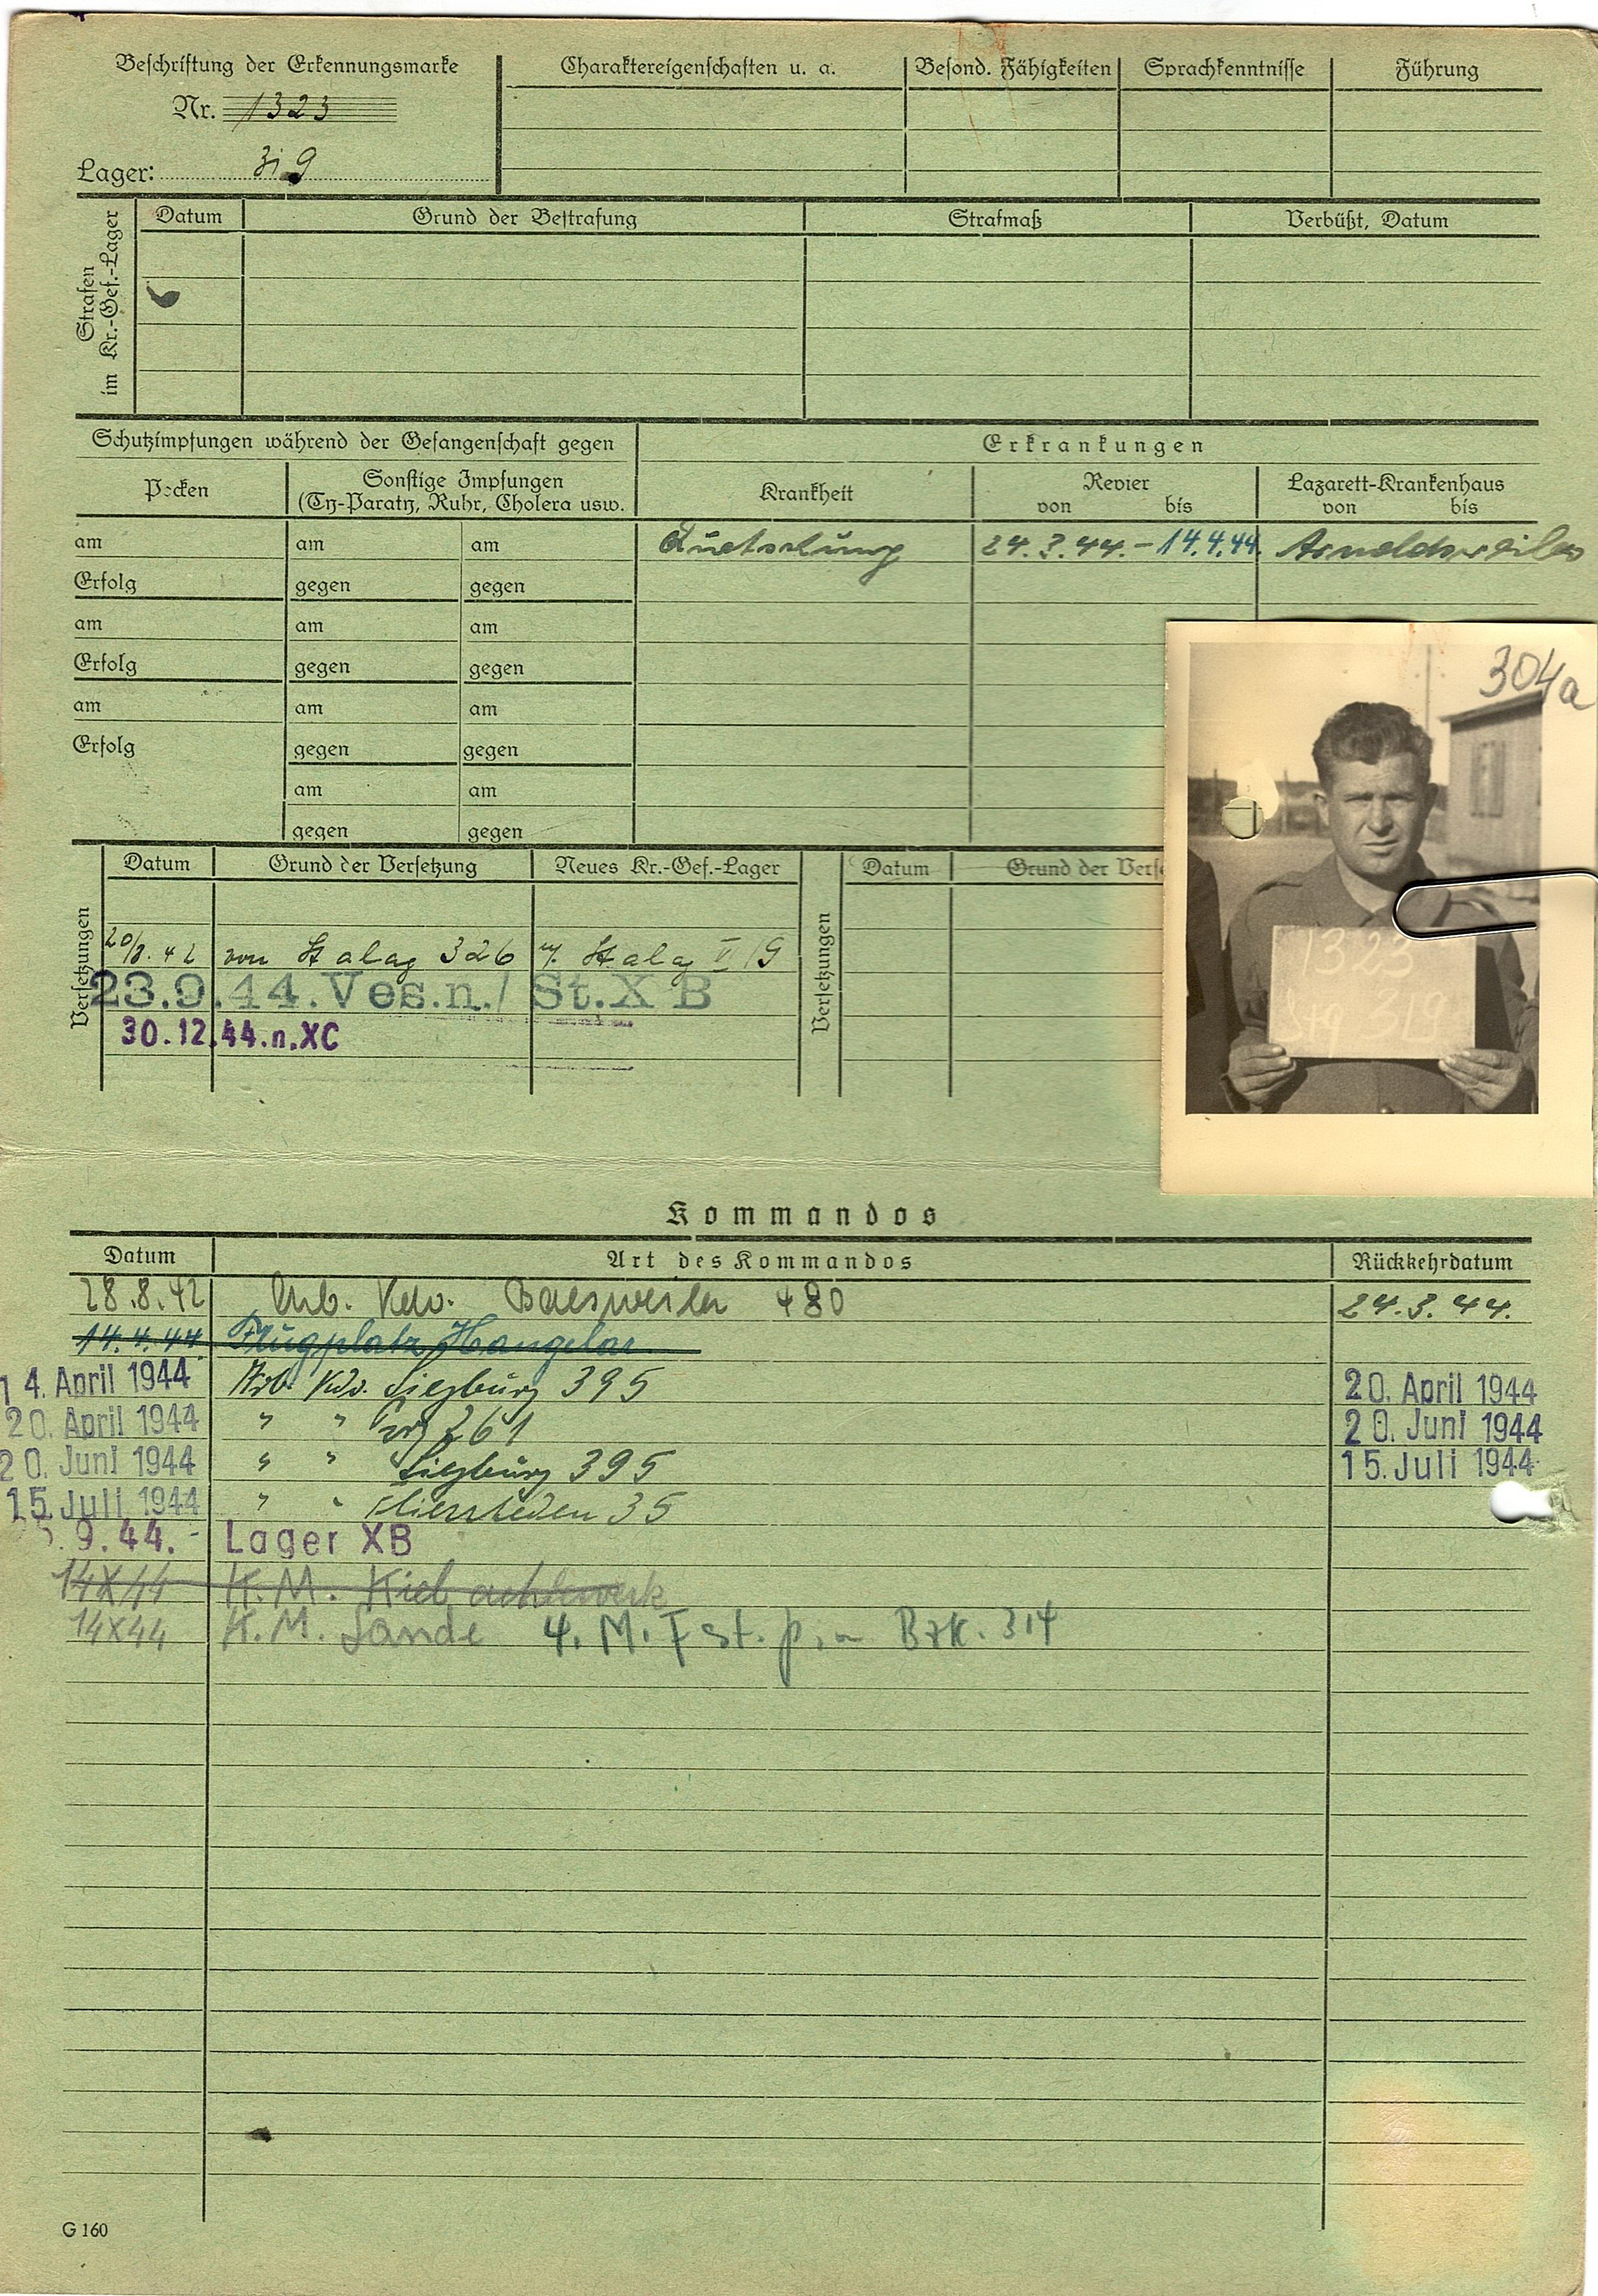 Beschriftung der Erkennungsmarke
Nr. 1323
Lager:
Charaktereigenschaften u. a. Besond. Fähigkeiten Sprachkenntnisse Führung
Strafen im Kr.-Gef.-Lager
Datum Grund der Bestrafung Strafmaß Verbüßt, Datum
Schutzimpfungen während der Gefangenschaft gegen Erkrankungen
Pocken
Sonstige Impfungen
(Ty-Paraty, Ruhr, Cholera usw.
Krankheit
Revier
von bis
Lazarett-Krankenhaus
von bis
am am am Quetschung 24.3.44. - 14.4.44. Arnoldsweiler
Erfolg gegen gegen
am am am
Erfolg gegen gegen
am am am
Erfolg gegen gegen
am am
gegen gegen
304a
1323
Versetzungen
Datum Grund der Versetzung Neues Kr.-Gef.-Lager
Versetzungen
Datum Grund der Verse
von Stalag 326 Stalag G
23.9.44. Ves.n./ St.X B
30.12.44.n.XC
Kommandos
Datum Art des Kommandos Rückkehrdatum
28.8.42 Arb. Kdo. Baesweiler 480 24.3.44.
14.4.44 Flugplatz Hangelar
14. April 1944 Arb. Kdo. Siegburg 395 20. April 1944
20. April 1944 " " 261 20. Juni 1944
20. Juni 1944 " " Siegburg 395 15. Juli 1944
15. Juli 1944 " " Fliesteden 35
9.44.- Lager XB
14X44 K.M. Kiel
14X44 K.M. Sande 4. M. Fest. Brk. 314
G 160